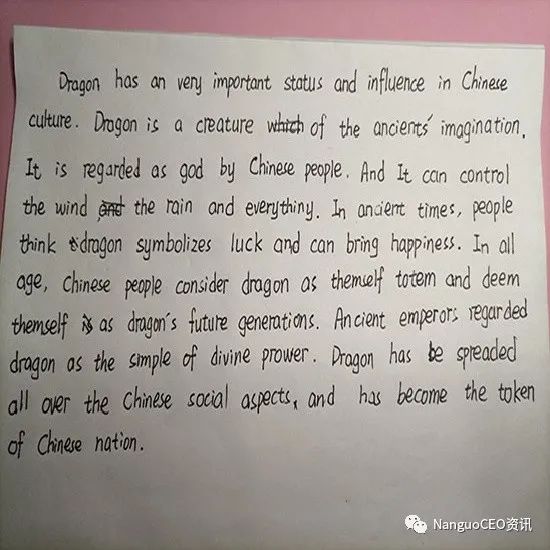 Dragon has an very important status and influence in Chinese
culture. Dragon is a creature which of the ancients' imagination.
It is regarded as god by Chinese people. And It can control
the wind and the rain and everythiny. In ancient times, people
think dragon symbolizes luck and can bring happiness. In all
age, Chinese people consider dragon as themself totem and deem
themself is as dragon's future generations. Ancient emperors regarded
dragon as the simple of divine prower. Dragon has be spreaded
all over the Chinese social aspects, and has become the token
of Chinese nation.
NanguoCEO资讯